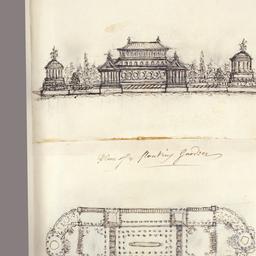 Plan of a Floating Garden